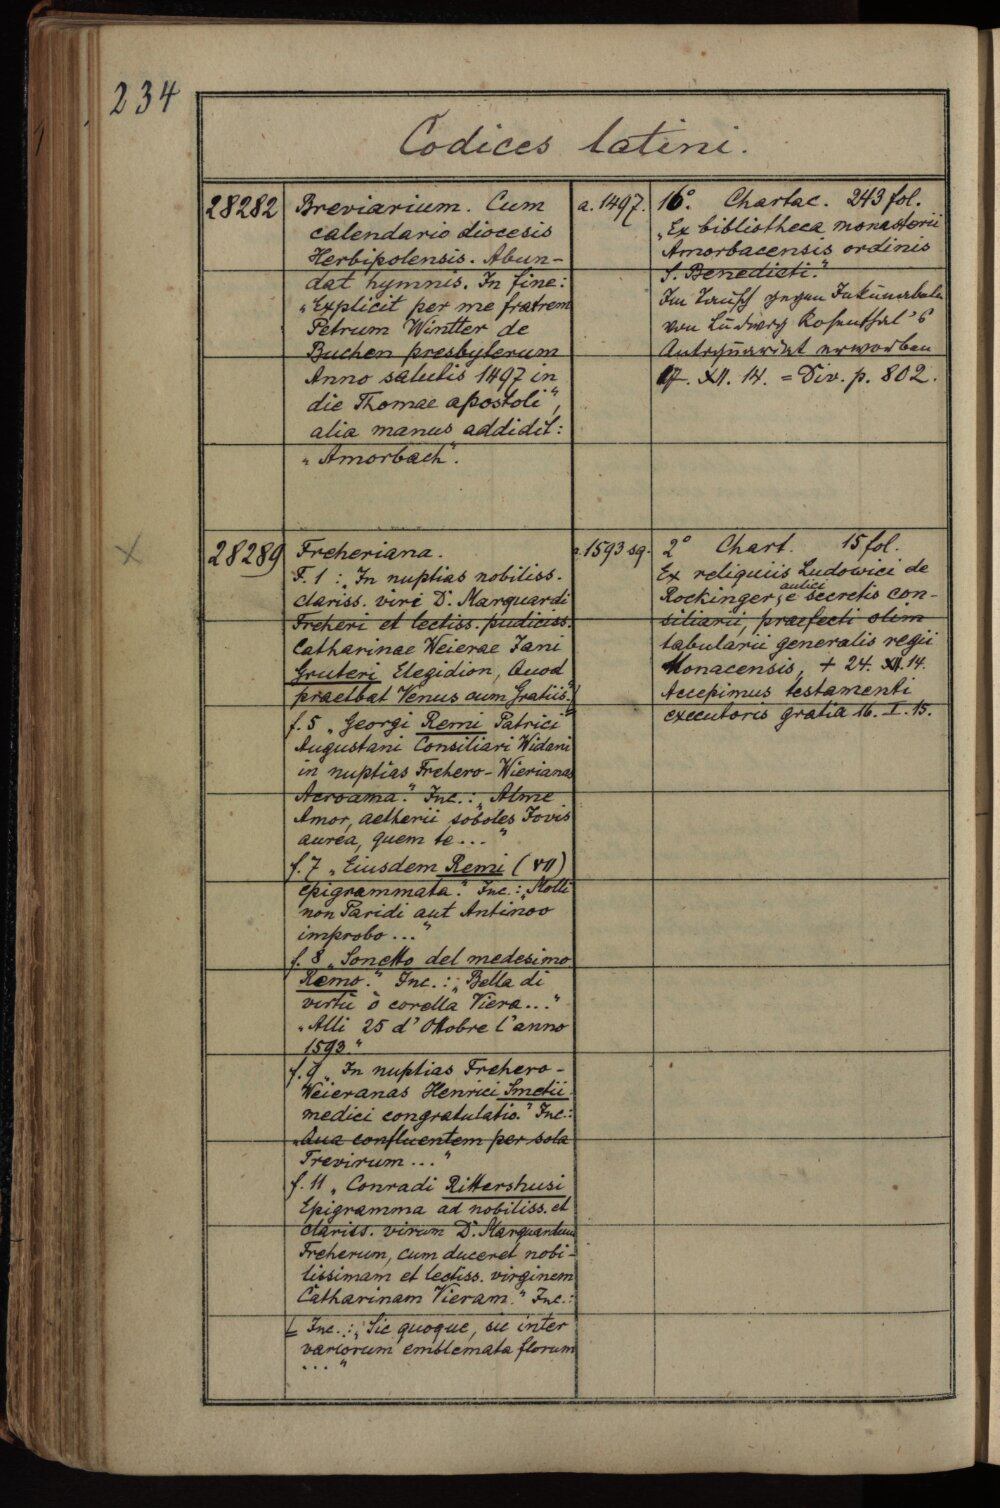 234
Codices latini.
28282
Breviarium. Cum
calendario diocesis
Herbipolensis. Abun-
dat hymnis. In fine:
„Explicit per me fratrem
Petrum Wintter de
Buchen presbyterum
Anno salutis 1497 in
die Thomae apostoli",
alia manus addidit:
„Amorbach".
a. 1497.
16°. Chartac. 243 fol.
„Ex bibliotheca monasterii
Amorbacensis ordinis
S. Benedicti."
Im Tausch gegen Inkunabeln
von Ludwig Rosenthal's
Antiquariat erworben
17. XII. 14. = Div. p. 802.
28289
Freheriana.
F. 1: „In nuptias nobiliss.
clariss. viri D. Marquardi
Freheri et lectiss. pudiciss.
Catharinae Weierae Jani
Gruteri Elegidion, Quod
praeibat Venus cum Gratiis."
f. 5 „Georgi Remi Patrici
Augustani Consiliari Widani
in nuptias Frehero-Wierianas
Acroama." Inc.: „Alme
Amor, aetherii soboles Jovis
aurea, quem te ..."
f. 7 „Eiusdem Remi (VII)
epigrammata." Inc.: „Molli
non Paridi aut Antinoo
improbo ..."
f. 8 „Sonetto del medesimo
Remo." Inc.: „Bella di
virtù ò corella Viera ..."
„Alli 25 d'Ottobre l'anno
1593."
f. 9 „In nuptias Frehero-
Weieranas Henrici Smetii
medici congratulatio." Inc.:
„Qua confluentem per sola
Trevirum ..."
f. 11 „Conradi Rittershusi
Epigramma ad nobiliss. et
clariss. virum D. Marquardum
Freherum, cum duceret nobi-
lissimam et lectiss. virginem
Catharinam Vieram." Inc.:
Inc.: „Sic quoque, sic inter
variorum emblemata florum
..."
a. 1593 sq.
2° Chart. 15 fol.
Ex reliquiis Ludovici de
Rockinger, aulici e secretis con-
siliarii, praefecti olim
tabularii generalis regii
Monacensis, + 24. XII. 14.
Accepimus testamenti
executoris gratia 16. I. 15.